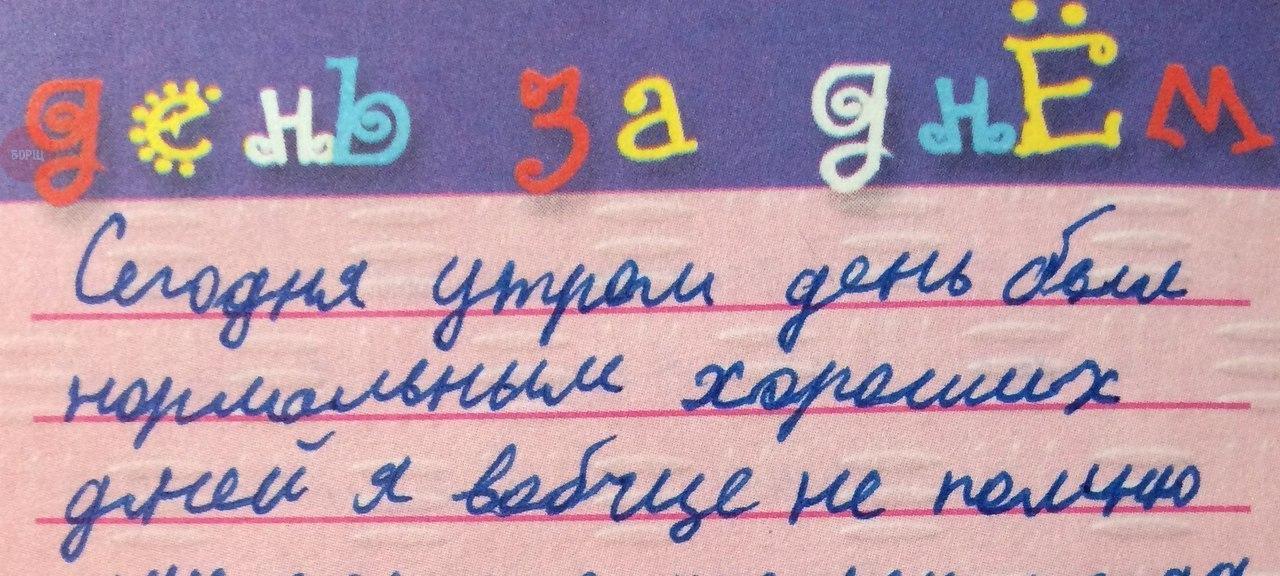 день за днЁм
БОРЩ
Сегодня утром день был
нормальным хороших
дней я вобчще не помню